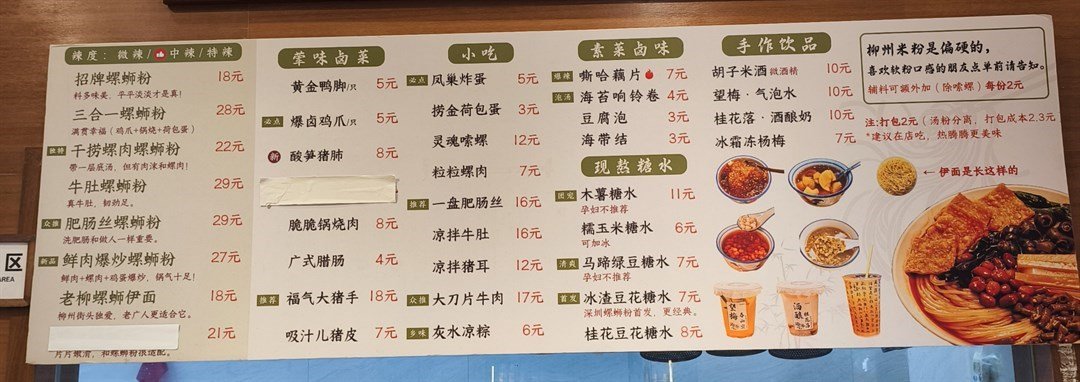 辣度：微辣/中辣/特辣
招牌螺蛳粉 18元
料多味美，平平淡淡才是真！
三合一螺蛳粉 28元
满贯幸福（鸡爪+锅烧+荷包蛋）
独特 干捞螺肉螺蛳粉 22元
带一层底汤，但有肉沫和螺肉！
牛肚螺蛳粉 29元
真牛肚，韧劲足。
众推 肥肠丝螺蛳粉 29元
洗肥肠和做人一样重要。
新品 鲜肉爆炒螺蛳粉 27元
鲜肉+螺肉+鸡蛋爆炒，锅气十足！
老柳螺蛳伊面 18元
柳州街头独爱，老广人更适合它。
21元
片片嫩滑，和螺蛳粉很适配。
荤味卤菜
黄金鸭脚/只 5元
必点 爆卤鸡爪/只 5元
新 酸笋猪肺 8元
脆脆锅烧肉 8元
广式腊肠 4元
推荐 福气大猪手 18元
吸汁儿猪皮 7元
小吃
必点 凤巢炸蛋 5元
捞金荷包蛋 3元
灵魂嗦螺 12元
粒粒螺肉 7元
推荐 一盘肥肠丝 16元
凉拌牛肚 16元
凉拌猪耳 12元
众推 大刀片牛肉 17元
乡味 灰水凉粽 6元
素菜卤味
爆辣 嘶哈藕片 7元
泡汤 海苔响铃卷 4元
豆腐泡 3元
海带结 3元
现熬糖水
团宠 木薯糖水 11元
孕妇不推荐
糯玉米糖水 6元
可加冰
清爽 马蹄绿豆糖水 7元
孕妇不推荐
首发 冰渣豆花糖水 7元
深圳螺蛳粉首发，更经典。
桂花豆花糖水 8元
手作饮品
胡子米酒 微酒精 10元
望梅·气泡水 10元
桂花落·酒酿奶 10元
冰霜冻杨梅 7元
柳州米粉是偏硬的，
喜欢软粉口感的朋友点单前请告知。
辅料可额外加（除嗦螺）每份2元
注:打包2元（汤粉分离，打包成本2.3元
*建议在店吃，热腾腾更美味
← 伊面是长这样的
望梅
海酿
区
AREA